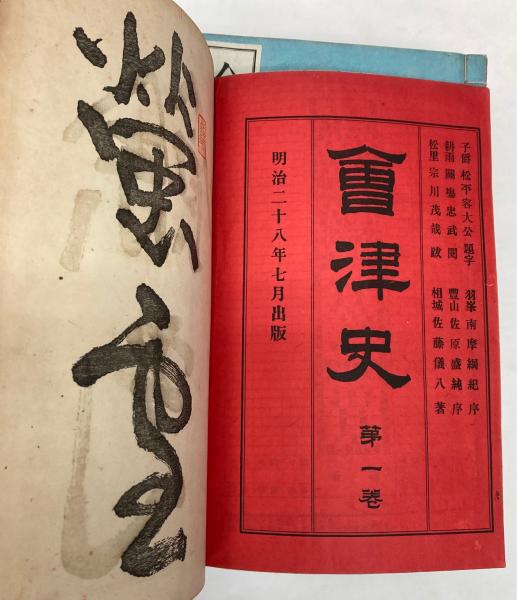 子爵 松平容大公 題字 羽峯 南摩綱紀 序
耕雨 關場忠武 閲 豐山 佐原盛純 序
松里 宗川茂哉 跋 相城 佐藤儀八 著
會津史 第一卷
明治二十八年七月出版